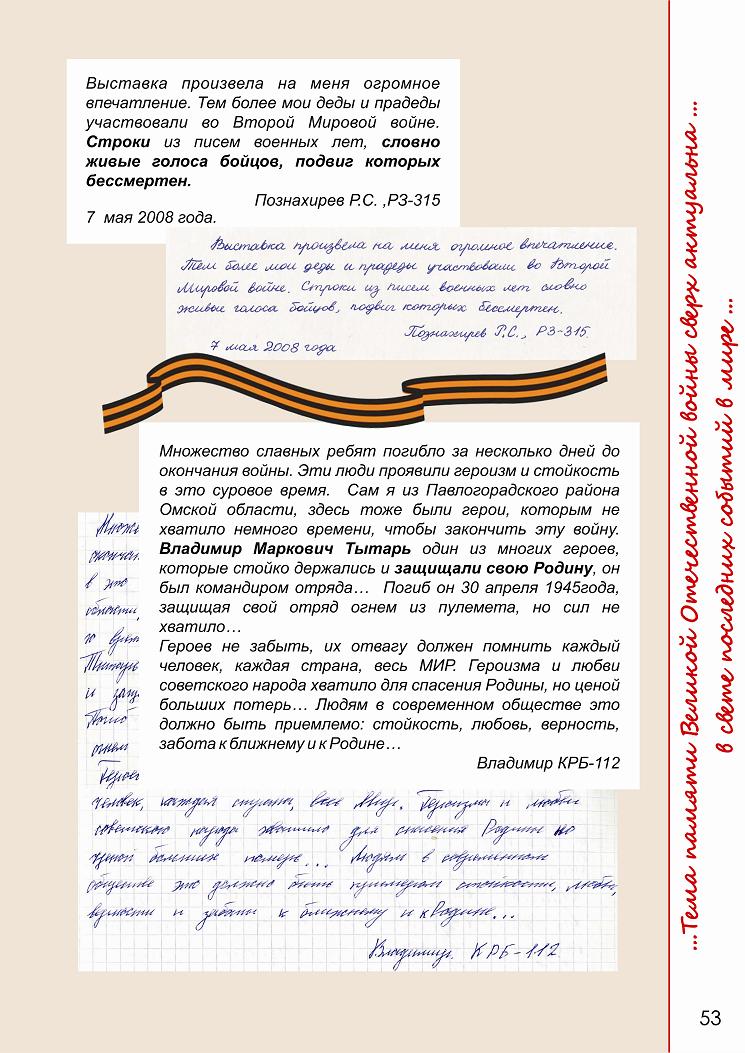 Выставка произвела на меня огромное
впечатление. Тем более мои деды и прадеды
участвовали во Второй Мировой войне.
Строки из писем военных лет, словно
живые голоса бойцов, подвиг которых
бессмертен.
Познахирев Р.С. ,РЗ-315
7 мая 2008 года.
Выставка произвела на меня огромное впечатление.
Тем более мои деды и прадеды участвовали во Второй
Мировой войне. Строки из писем военных лет словно
живые голоса бойцов, подвиг которых бессмертен.
Познахирев Р.С., РЗ-315.
7 мая 2008 года
Множество славных ребят погибло за несколько дней до
окончания войны. Эти люди проявили героизм и стойкость
в это суровое время. Сам я из Павлоградского района
Омской области, здесь тоже были герои, которым не
хватило немного времени, чтобы закончить эту войну.
Владимир Маркович Тытарь один из многих героев,
которые стойко держались и защищали свою Родину, он
был командиром отряда… Погиб он 30 апреля 1945года,
защищая свой отряд огнем из пулемета, но сил не
хватило…
Героев не забыть, их отвагу должен помнить каждый
человек, каждая страна, весь МИР. Героизма и любви
советского народа хватило для спасения Родины, но ценой
больших потерь… Людям в современном обществе это
должно быть приемлемо: стойкость, любовь, верность,
забота к ближнему и к Родине…
Владимир КРБ-112
Множе
окончан
в это
области,
и защ
Погиб
огнем
Герое
человек, каждая страна, весь Мир. Героизма и любви
советского народа хватило для спасения Родины но
ценой больших потерь... Людям в современном
обществе это должно быть примером стойкости, любви,
верности и заботы к ближнему и к Родине...
Владимир. КРБ-112
...Тема памяти Великой Отечественной войны сверх актуальна ...
в свете последних событий в мире ...
53